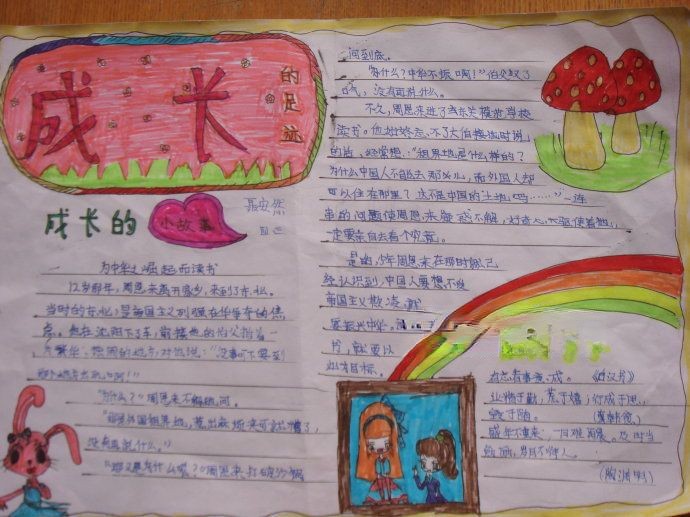 成长
的足迹
成长的
小故事
为中华之崛起而读书
12岁那年，周恩来离开家乡，来到了东北。
当时的东北，是帝国主义列强在华争夺的焦
点。他在沈阳下了车，前来接他的伯父指着一
片繁华、热闹的地方，对他说："没事可不要到
那个地方去玩啊！"
"为什么？"周恩来不解地问。
"那是外国租界地，惹出麻烦来可就糟了，
没有地方说什么。"
"那又是为什么呢？"周恩来打破沙锅
问到底。
"为什么？中华不振啊！"伯父叹了
口气，没有再说什么。
不久，周恩来进了东关模范学校
读书。他始终忘不了大伯接他时说
的话，经常想："租界地是什么样的？
为什么中国人不能去那儿，而外国人却
可以住在那里？这不是中国的土地吗……"一连
串的问题使周恩来疑惑不解，好奇心驱使着他，
一定要亲自去看个究竟。
是的，少年周恩来在那时就已
经认识到，中国人要想不受
帝国主义欺凌，就
要振兴中华。
书，就要以
此为目标。
有志者事竟成。《后汉书》
业精于勤，荒于嬉；行成于思，
毁于随。
盛年不重来，一日难再晨。及时当
勉励，岁月不待人。